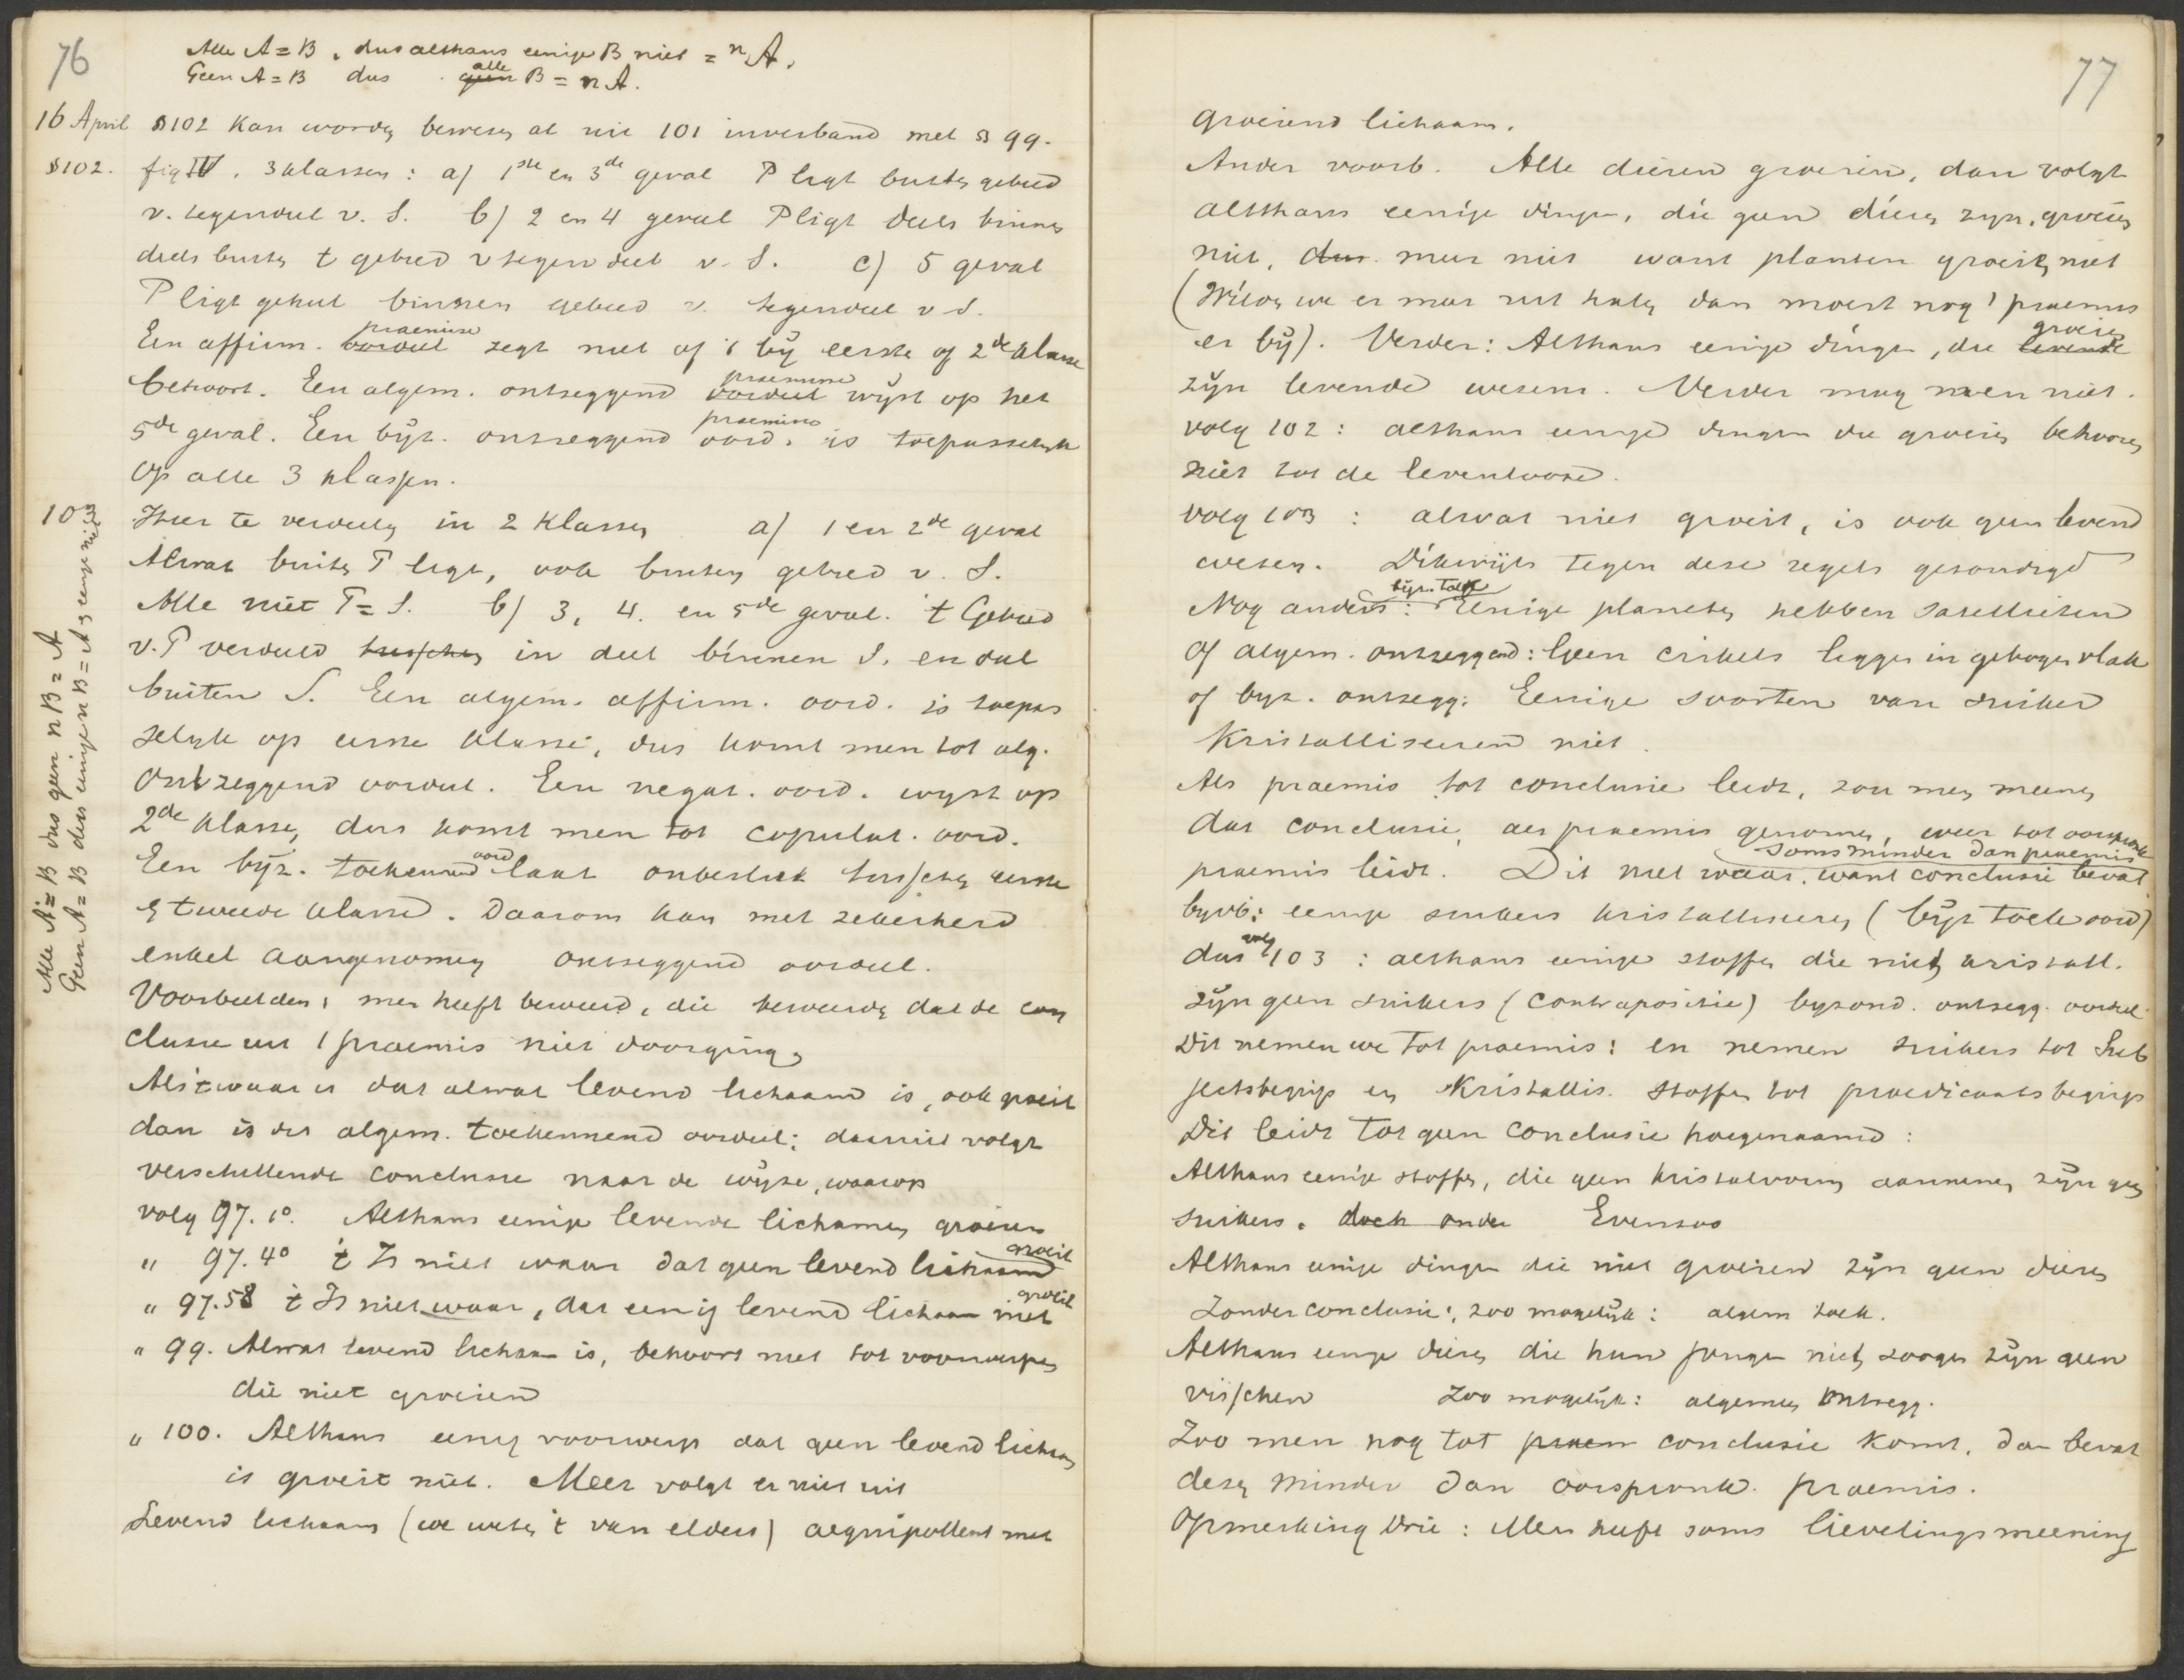 76
Alle A = B, dus althans eenige B niet = n A.
Geen A = B dus alle geen B = n A.
16 April § 102 Kan worden bewezen al uit 101 in verband met § 99.
§ 102. fig IV. 3 klassen: a) 1ste en 3de geval P ligt buiten gebied
v. tegendeel v. S. b) 2 en 4 geval P ligt deels binnen
deels buiten t gebied v tegendeel v. S. c) 5 geval
P ligt geheel binnen gebied v. tegendeel v S.
praemisse
Een affirm. oordeel zegt niet of 't bij eerste of 2de klasse
praemisse
behoort. Een algem. ontzeggend oordeel wijst op het
praemisse
5de geval. Een bijz. ontzeggend oord. is toepasselijk
op alle 3 klassen.
103 Hier te verdeelen in 2 klassen a) 1 en 2de geval
Alwat buiten P ligt, ook buiten gebied v. S.
Alle niet P = S. b) 3, 4. en 5de geval. 't Gebied
v. P verdeeld tusschen in deel binnen S. en dat
buiten S. Een algem. affirm. oord. is toepas
selijk op eerste klasse, dus komt men tot alg.
ontzeggend oordeel. Een negat. oord. wijst op
2de klasse, dus komt men tot copulat. oord.
oord
Een bijz. toekennend laat onbeslist tusschen eerste
en tweede klasse. Daarom kan met zekerheid
enkel aangenomen ontzeggend oordeel.
Voorbeelden: men heeft beweerd, die beweerde dat de con
clusie uit 1 praemis niet doorging
Als 't waar is dat alwat levend lichaam is, ook groeit
dan is dit algem. toekennend oordeel: daaruit volgt
verschillende conclusie naar de wijze, waarop
volg 97. 1o. Althans eenige levende lichamen groeien
groeit
" 97. 4o 't Is niet waar dat geen levend lichaam
groeit
" 97. 58 't Is niet waar, dat eenig levend lichaam niet
" 99. Alwat levend lichaam is, behoort niet tot voorwerpen
die niet groeien
" 100. Althans eenig voorwerp dat geen levend lichaam
is groeit niet. Meer volgt er niet uit
Levend lichaam (we weten 't van elders) aequipollent met
Alle A = B dus geen n B = A
Geen A = B dus eenige n B = A en eenige niet
77
groeiend lichaam.
Ander voorb. Alle dieren groeien, dan volgt
althans eenige dingen, die geen dieren zijn, groeien
niet, dus meer niet want planten groeien niet
(Wilden we er meer uit halen dan moest nog 1 praemis
groeien
er bij). Verder: Althans eenige dingen, die levende
zijn levende wezens. Verder mag men niet.
volg 102: althans eenige dingen die groeien behooren
niet tot de levenlooze.
volg 103: alwat niet groeit, is ook geen levend
wezen. Dikwijls tegen deze regels gezondigd
bijz. toek
Nog anders: Eenige planeten hebben satellieten
of algem. ontzeggend: Geen cirkels liggen in gebogen vlak
of bijz. ontzegg: Eenige soorten van suiker
kristalliseeren niet.
Als praemis tot conclusie leidt, zou men meenen
dat conclusie, als praemis genomen, weer tot oorspronk
soms minder dan praemis
praemis leidt. Dit niet waar, want conclusie bevat
bijvb: eenige suikers kristalliseeren (bijz toek oord)
volg
dus 103: althans eenige stoffen die niet kristall.
zijn geen suikers (contrapositie) byzond. ontzegg. oordeel.
Dit nemen we tot praemis: en nemen suikers tot Sub
jectsbegrip en kristallis. stoffen tot praedicaatsbegrip
Dit leidt tot geen conclusie hoegenaamd:
Althans eenige stoffen, die geen kristalvorm aannemen zijn geen
suikers. doch onder Evenzoo
Althans eenige dingen die niet groeien zijn geen dieren
Zonder conclusie; zoo mogelijk: algem toek.
Althans eenige dieren die hun jongen niet zoogen zijn geen
visschen Zoo mogelijk: algemeen ontzegg.
Zoo men nog tot praem conclusie komt, dan bevat
deze minder dan oorspronk. praemis.
Opmerking drie: Men heeft soms lievelingsmeening